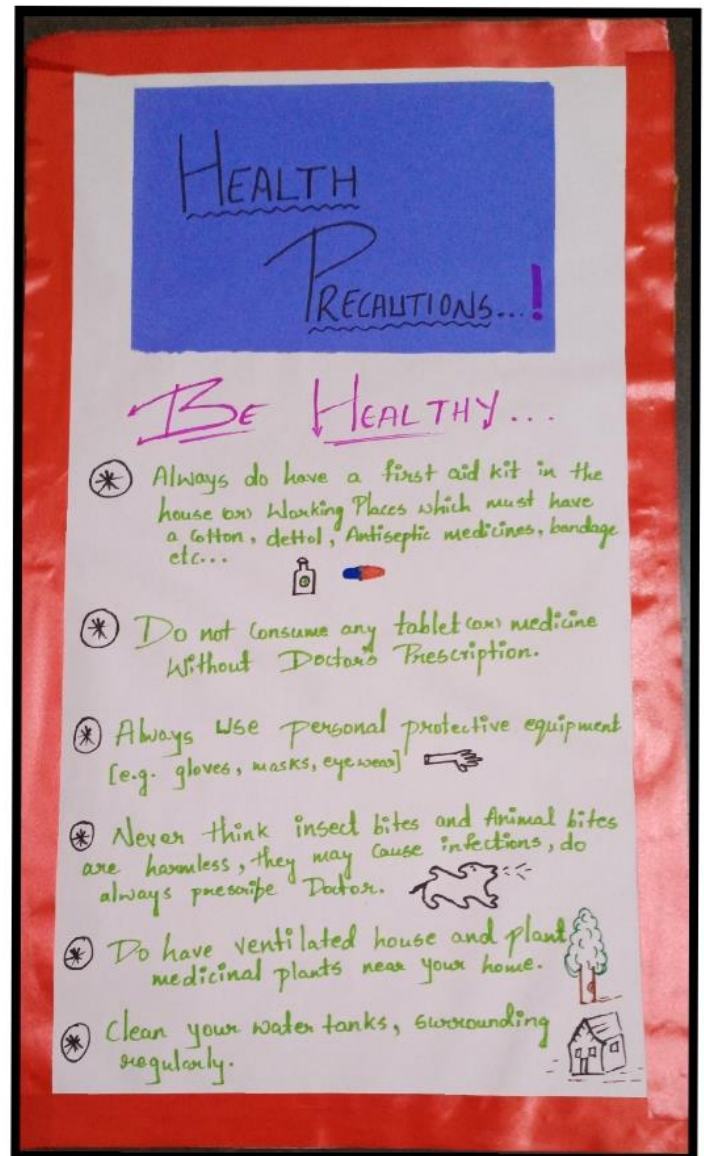 HEALTH
PRECAUTIONS...!
BE HEALTHY...
Always do have a first aid kit in the
house (or) Working Places which must have
a Cotton, dettol, Antiseptic medicines, bandage
etc...
Do not Consume any tablet (or) medicine
Without Doctor's Prescription.
Always Use personal protective equipment
[e.g. gloves, masks, eyewear]
Never think insect bites and Animal bites
are harmless, they may Cause infections, do
always prescribe Doctor.
Do have ventilated house and plant
medicinal plants near your home.
Clean your water tanks, surrounding
regularly.